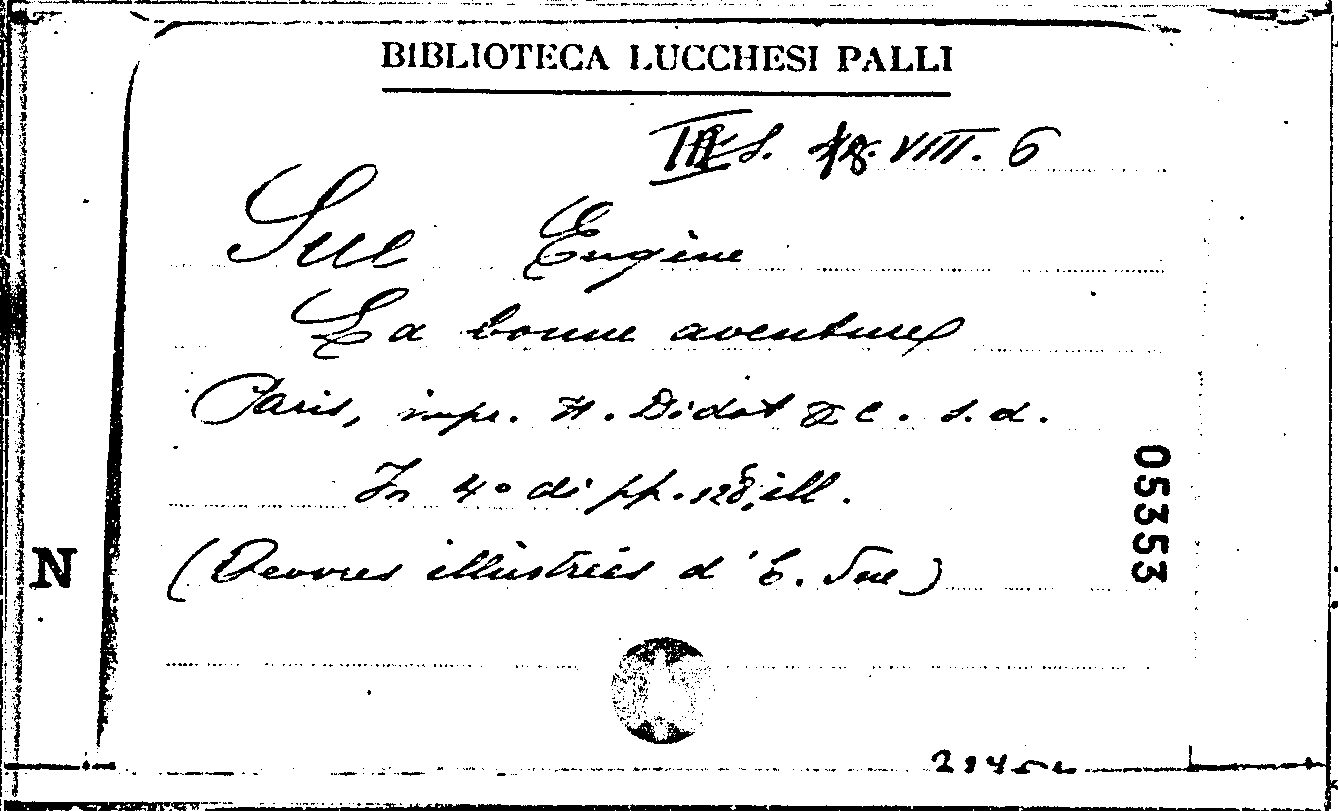 BIBLIOTECA LUCCHESI PALLI
S. VIII. 6
Sue Eugène
La bonne aventure
Paris, impr. H. Didot & C. s.d.
In 4° di pp. 128, ill.
(Oeuvres illustrées d'E. Sue)
05353
N